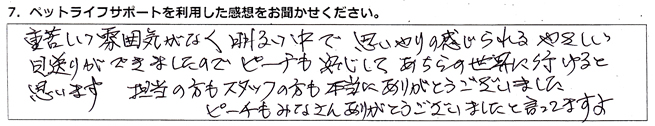 7. ペットライフサポートを利用した感想をお聞かせください。
重苦しい雰囲気がなく明るい中で思いやりの感じられるやさしい
見送りができましたのでピーチも安心してあちらの世界に行けると
思います 担当の方もスタッフの方も本当にありがとうございました
ピーチもみなさんありがとうございましたと言ってますよ